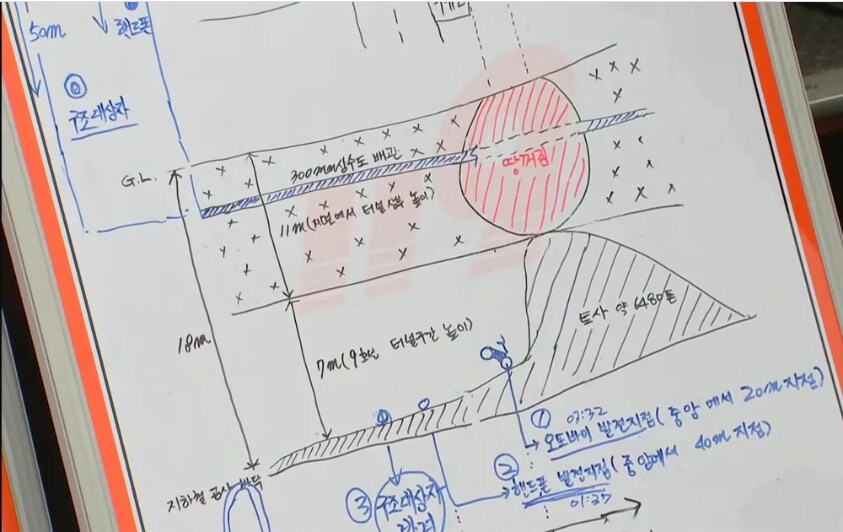 50m
핸드폰
구조대상자
G.L.
300mm상수도 배관
땅꺼짐
11m(지면에서 터널상부 높이)
18m
7m(9호선 터널구간 높이)
토사 약 6480톤
① 03:32
오토바이 발견지점(중앙에서 20m지점)
② 핸드폰 발견지점(중앙에서 40m지점)
01:37
지하철 공사 바닥
③ 구조대상자